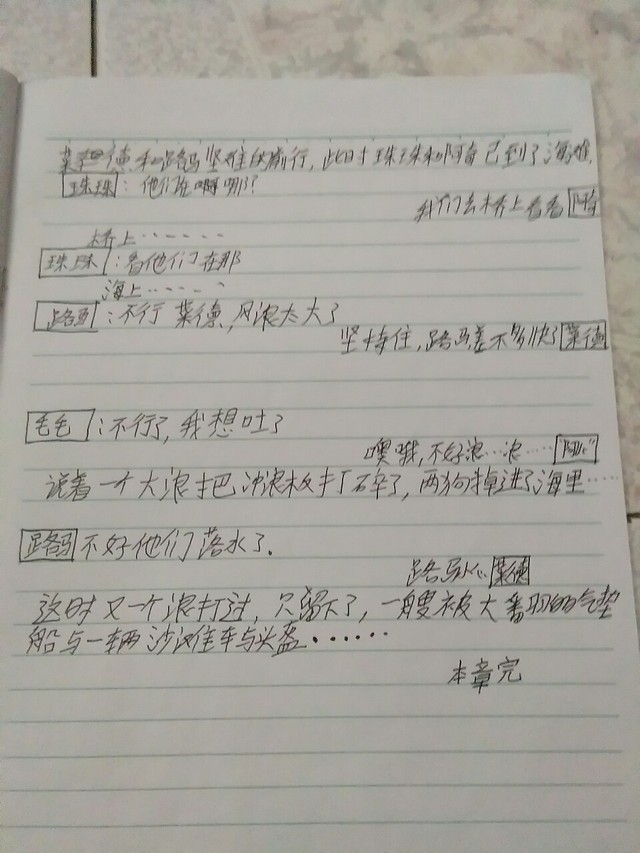 莱德和路马坚难的前行，此时珠珠和阿奇已到了海滩，
珠珠：他们在啊哪？
我们去桥上看看 阿奇
桥上……
珠珠：看他们在那
海上……
路马：不行 莱德，风浪太大了
坚持住，路马差不多快了 莱德
毛毛：不行了，我想吐了
噢哦，不好浪…浪……
说着一个大浪把冲浪板打碎了，两狗掉进了海里……
路马 不好他们落水了.
路马小心 莱德
这时又一个浪打过，只留下了，一艘被大番羽的气垫
船与一辆沙滩车与头盔……
本章完